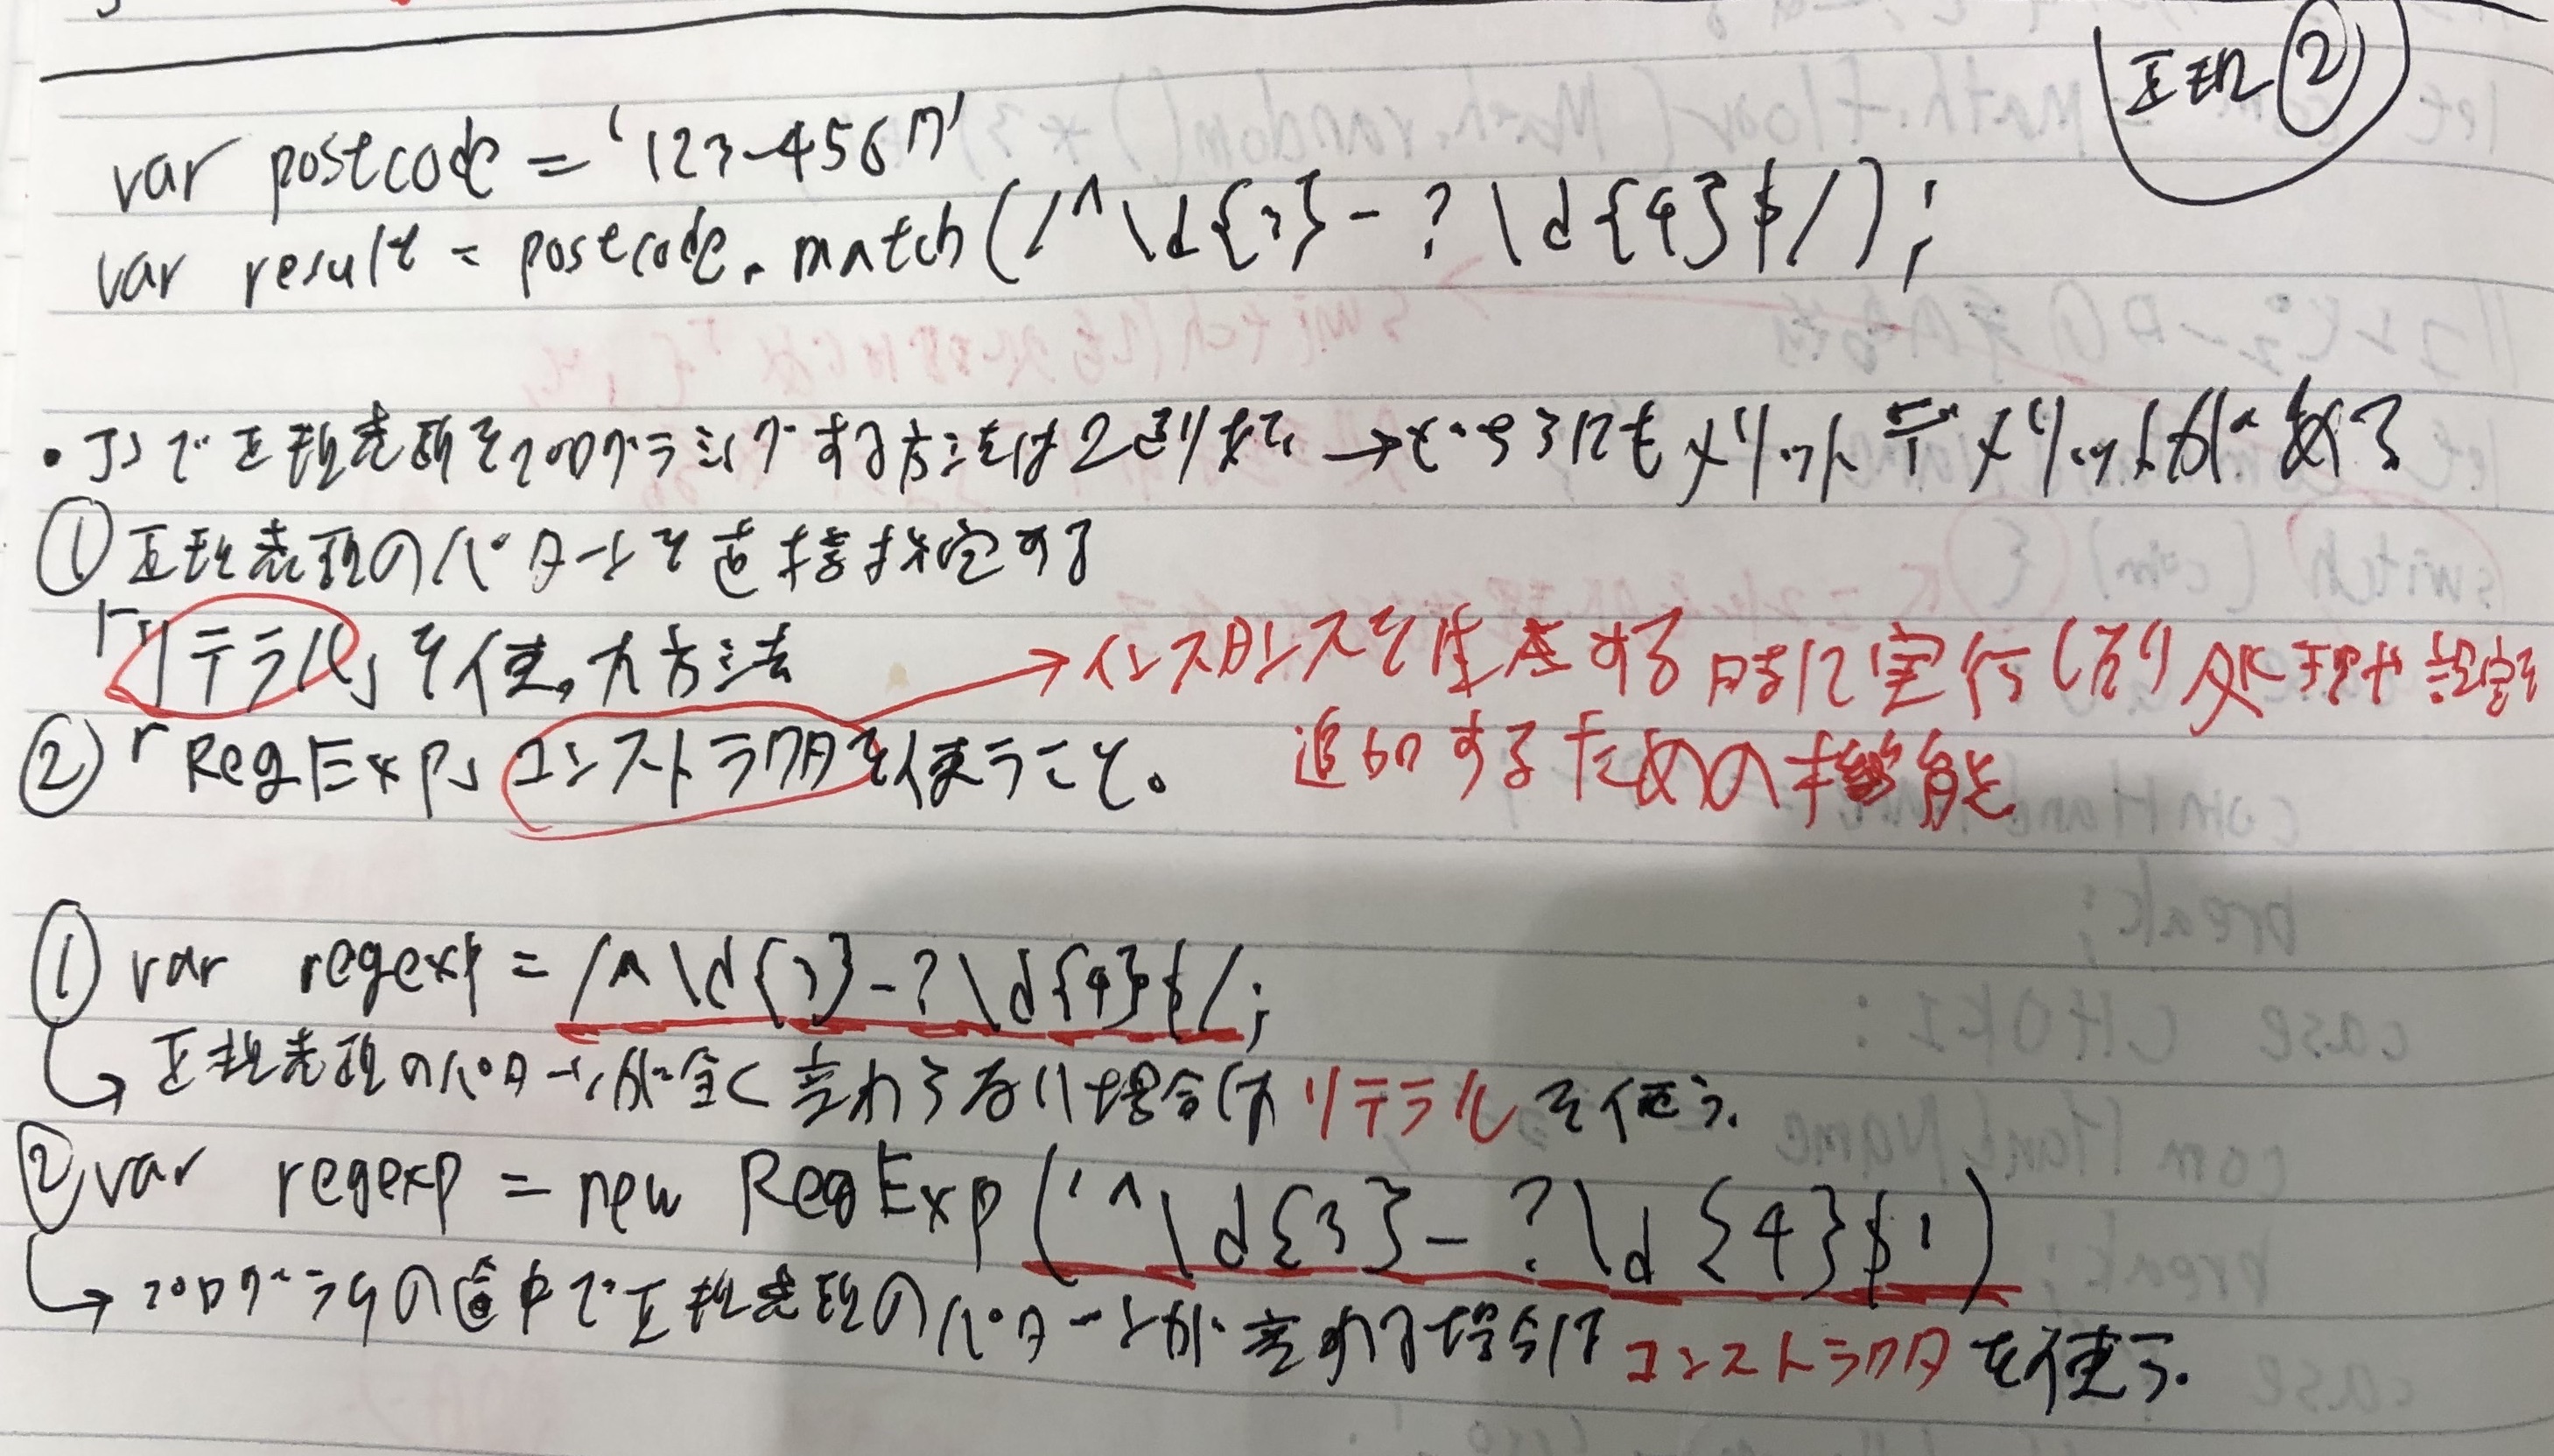 正規②
var postcode = '123-4567'
var result = postcode.match(/^\d{3}-?\d{4}$/);
・JSで正規表現をプログラミングする方法は2通りある →どちらにもメリットデメリットがある
①正規表現のパターンを直接指定する
「リテラル」を使った方法
→インスタンスを生産する時に実行したり処理や設定を
②「RegExp」コンストラクタを使うこと。
追加するための機能
① var regexp = /^\d{3}-?\d{4}$/;
→正規表現のパターンが全く変わらない場合はリテラルを使う.
②var regexp = new RegExp('^\d{3}-?\d{4}$')
→プログラムの途中で正規表現のパターンが変わる場合はコンストラクタを使う.